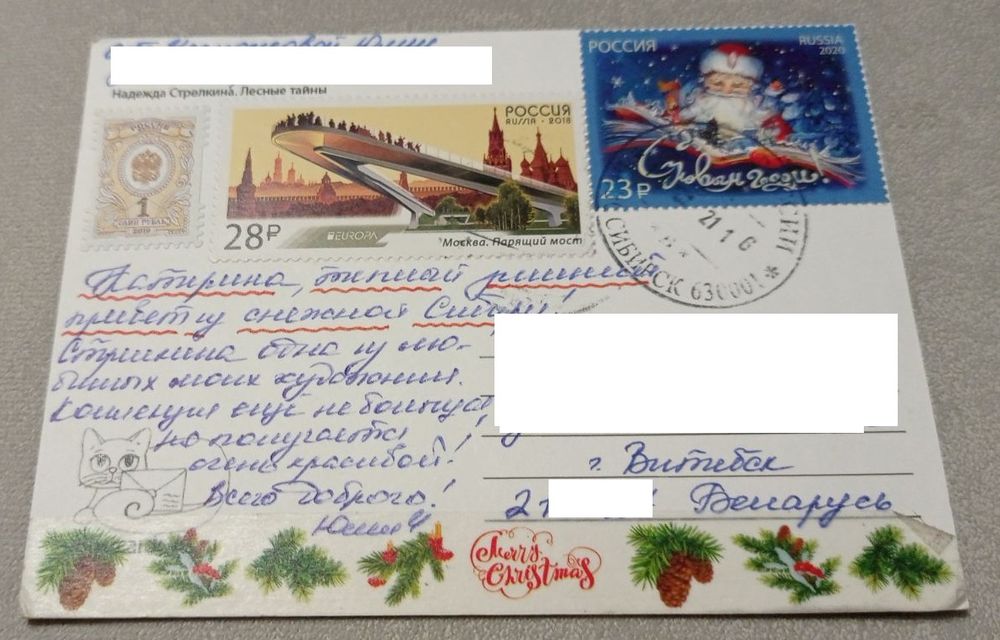 Надежда Стрелкина. Лесные тайны
РОССИЯ
1
ОДИН РУБЛЬ
2019
РОССИЯ
RUSSIA · 2018
28₽
EUROPA
Москва. Парящий мост
РОССИЯ
RUSSIA
2020
С Новым годом!
23₽
21 1
СИБИРСК 630001
Катерина, теплый зимний
привет из снежной Сибири!
Стрелкина одна из лю-
бимых моих художниц.
Коллекция ещё не большая,
но получается
очень красивой!
Всего доброго!
Юлия
г. Витебск
2 Беларусь
Merry
Christmas